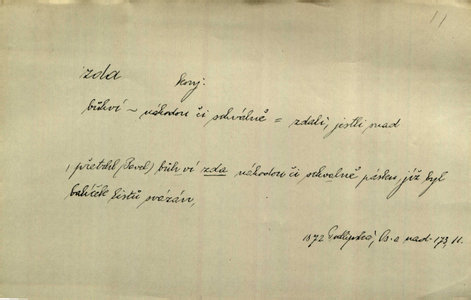 11
zda konj.
bůhví ~ náhodou či schválně = zdali, jestli snad
, přetrhl (Pavel) bůh ví zda náhodou či schválně pásku, jíž byl
balíček listů svázán,
1872 Podlipská, Os. a nad. 173, 11.